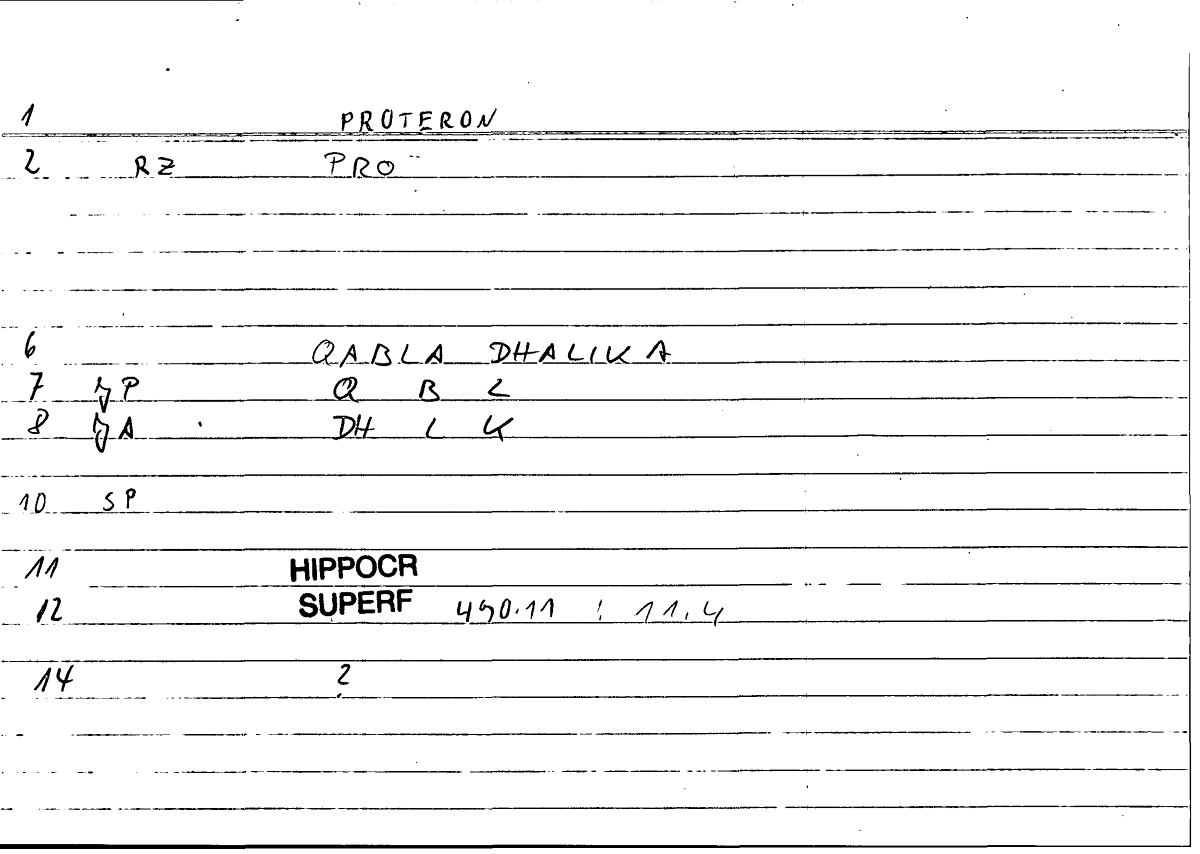 1 PROTERON
2 RZ PRO
6 QABLA DHALIKA
7 P Q B L
8 A DH L K
10 SP
11 HIPPOCR
12 SUPERF 490.11 : 11.4
14 ?